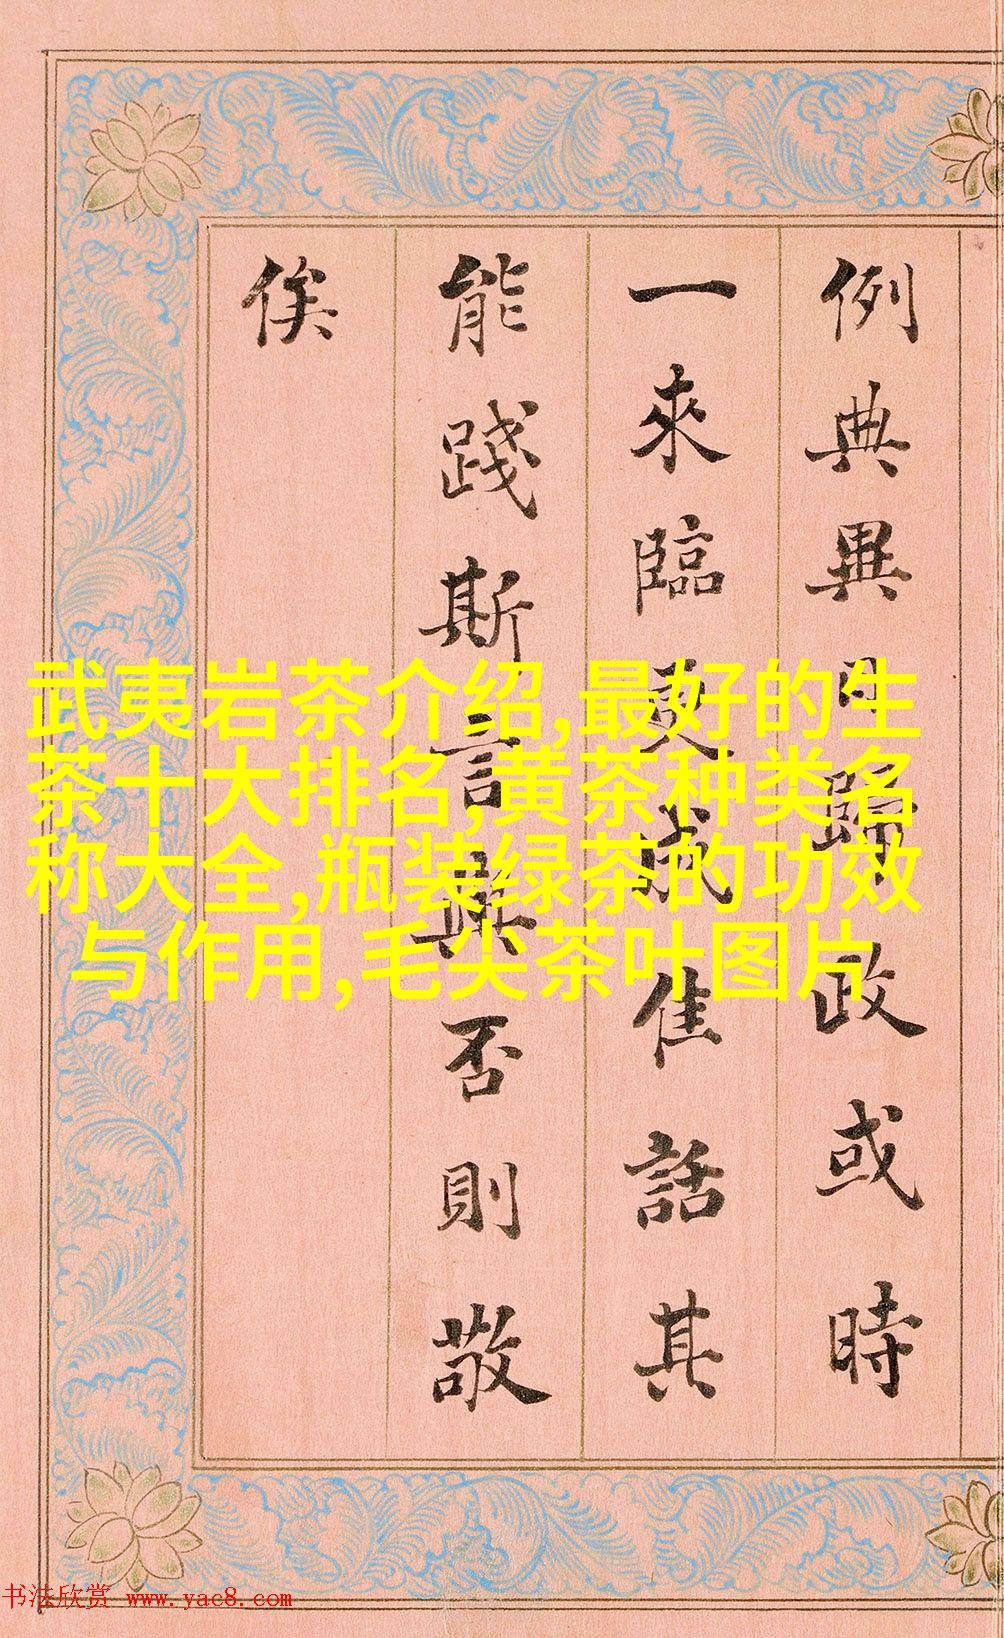 例典異日歸政或時
一來臨更成佳話其
能踐斯言與否則敬
俟
武夷岩茶介绍,最好的生
茶十大排名,黄茶种类名
称大全,瓶装绿茶的功效
与作用,毛尖茶叶图片
书法欣赏 www.yac8.com